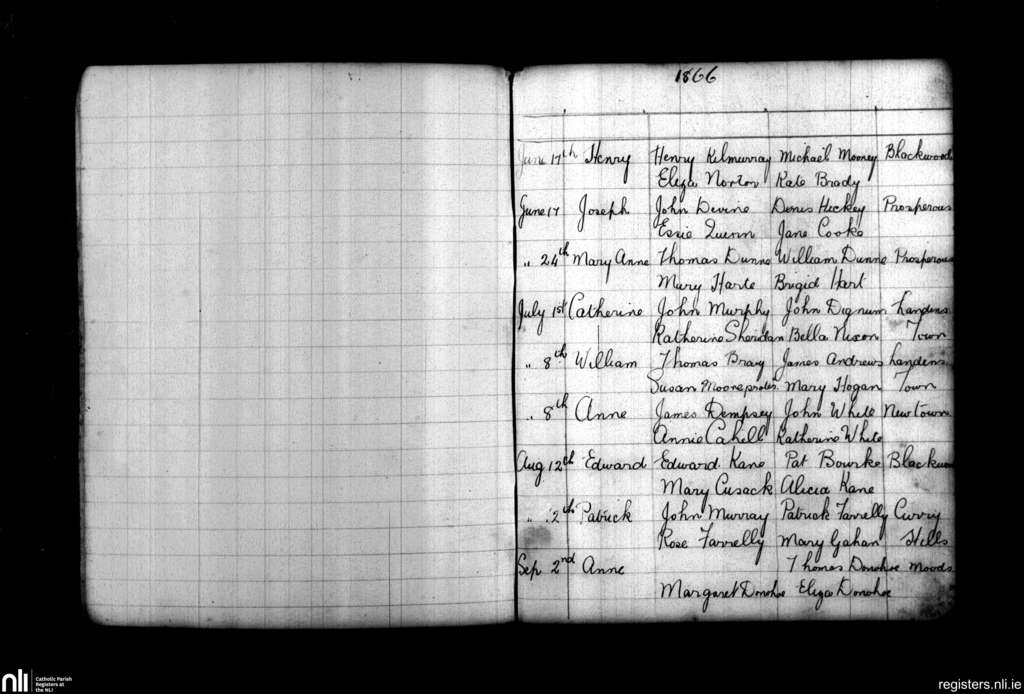 1866
June 17th Henry Henry Kilmurray Michael Mooney Blackwood
Eliza Norton Kate Brady
June 17 Joseph John Devine Denis Hickey Prosperous
Essie Quinn Jane Cooke
" 24th Mary Anne Thomas Dunne William Dunne Prosperous
Mary Harte Brigid Hart
July 1st Catherine John Murphy John Dignum Landens
Katherine Sheridan Bella Nixon Town
" 8th William Thomas Bray James Andrews Landens
Susan Moore protes. Mary Hogan Town
" 8th Anne James Dempsey John White Newtown
Annie Cahill Katherine White
Aug 12th Edward Edward Kane Pat Bourke Blackwood
Mary Cusack Alicia Kane
" 12th Patrick John Murray Patrick Farrelly Curry
Rose Farrelly Mary Gahan Hills
Sep 2nd Anne Thomas Donohoe Moods
Margaret Donohoe Eliza Donohoe
nli Catholic Parish
Registers at
the NLI
registers.nli.ie